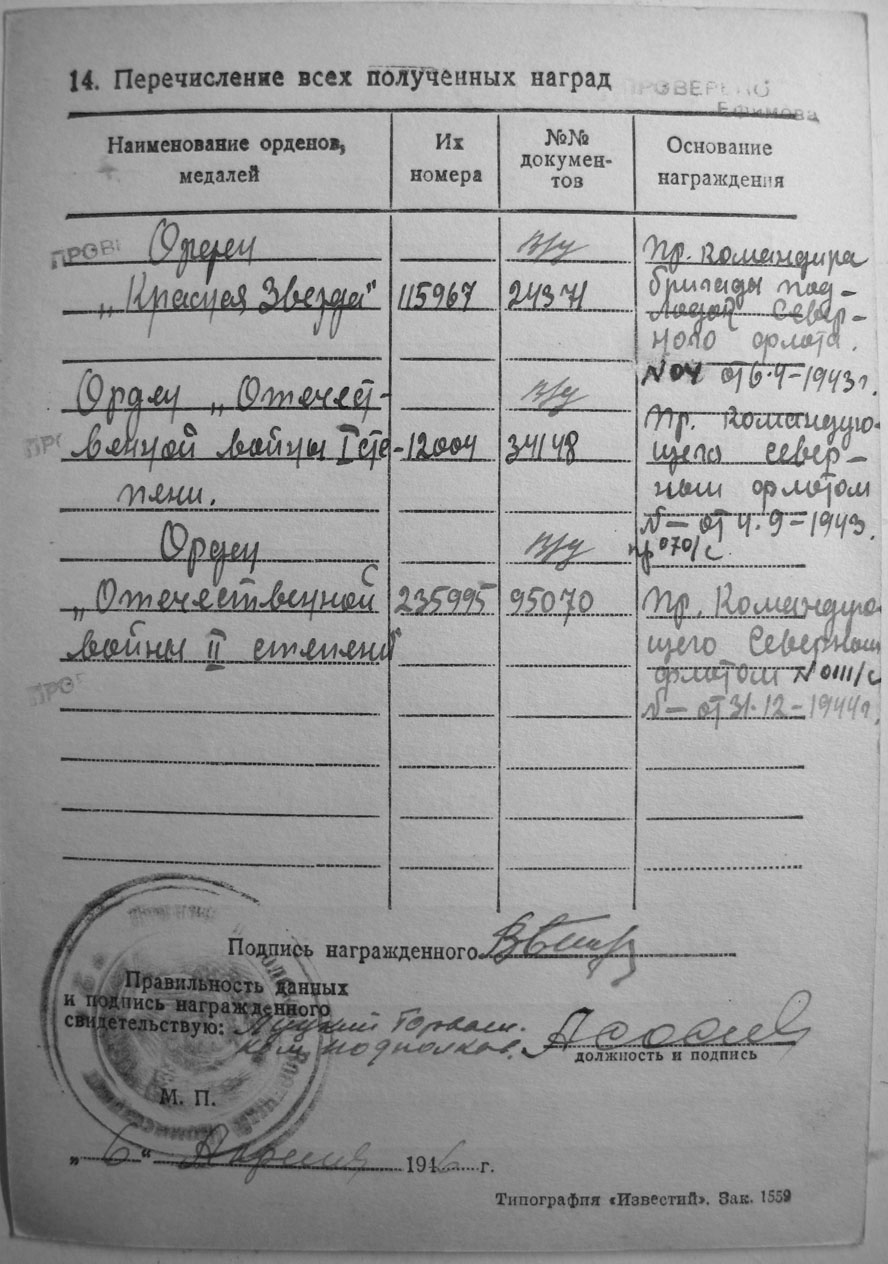 14. Перечисление всех полученных наград
ПРОВЕРЕНО
Ефимова
Наименование орденов, медалей
Их номера
№№ докумен-тов
Основание награждения
ПРОВ
Орден
„Красная Звезда"
115967
в/у
24371
Пр. Командира
бригады под-
лодок Север-
ного флота.
N 04 от 6-4-1943г.
Орден „Отечест-
венной войны I сте-
пени.
12004
в/у
34148
Пр. Командую-
щего Север-
ным флотом
N — от 4.9-1943.
пр 070/с.
Орден
„Отечественной
войны II степени"
235995
в/у
95070
Пр. Командую-
щего Северным
флотом N 0111/с
N — от 31.12-1944г.
ПРОВ
Подпись награжденного
Правильность данных
и подпись награжденного
свидетельствую:
Горвоен-
ком подполков.
должность и подпись
М. П.
„ 6 " Апреля 1946 г.
Типография «Известий». Зак. 1559